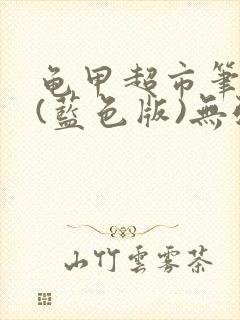 龟甲超市筆
(藍色版)無
山竹雲霧茶